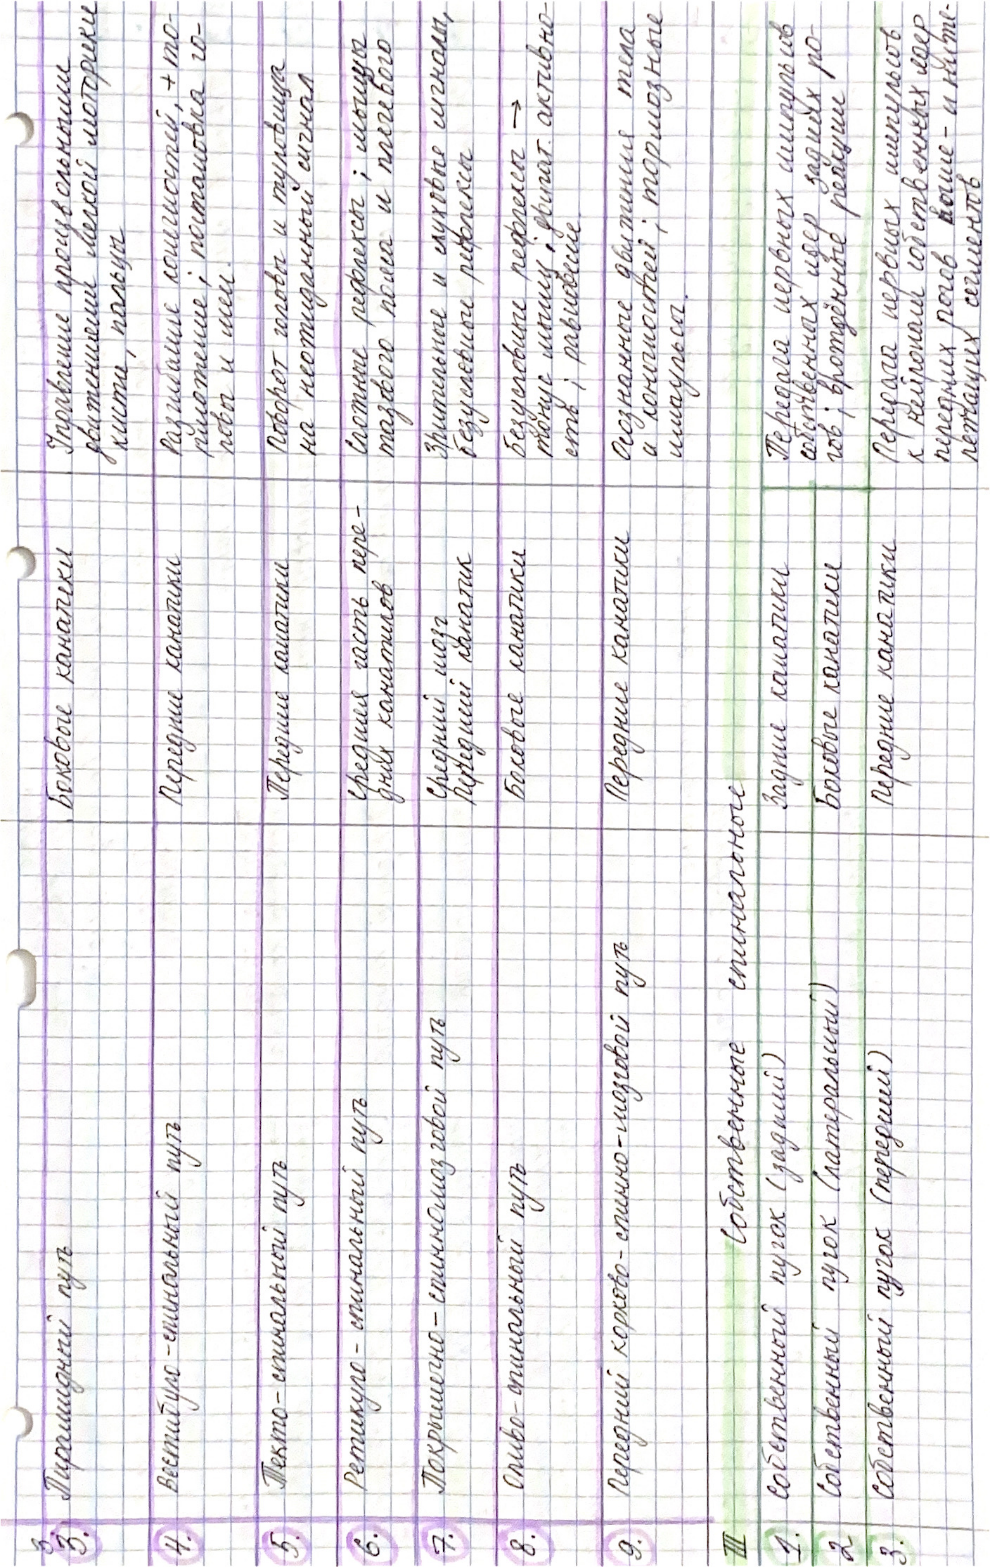 3
3.
Пирамидный путь
Боковые канатики
Управление произвольными
движениями мелкой моторики
кисти, пальцы
4.
Вестибуло-спинальный путь
Передние канатики
Разгибание конечностей, + то-
постановка го-
ловы и шеи.
5.
Текто-спинальный путь
Передние канатики
Поворот головы и туловища
на неожиданный сигнал
6.
Ретикуло-спинальный путь
Средняя часть перед-
них канатиков
Сложные рефлексы; мышцы
тазового пояса и плечевого
7.
Покрышечно-спинномозговой путь
Средний мозг
Передний канатик
Зрительные и слуховые сигналы,
безусловные рефлексы
8.
Оливо-спинальный путь
Боковые канатики
Безусловные рефлексы →
тонус мышц; двигат. активно-
сть; равновесие
9.
Передний корково-спинно-мозговой путь
Передние канатики
Осознанные движения тела
и конечностей; тормозные
импульсы.
III Собственные спинальные
1.
Собственный пучок (задний)
Задние канатики
Передача нервных импульсов
собственных ядер задних ро-
гов; врождённые реакции
2
Собственный пучок (латеральный)
Боковые канатики
3.
Собственный пучок (передний)
Передние канатики
Передача нервных импульсов
к нейронам собственных ядер
передних рогов выше- и ниже-
лежащих сегментов